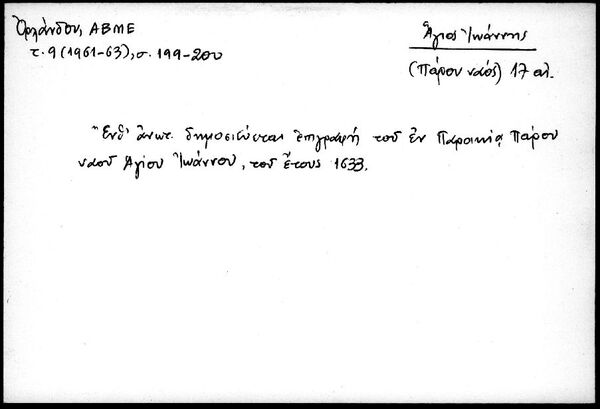 Ὀρλάνδου, ΑΒΜΕ
τ. 9 (1961-63), σ. 199-200
Ἅγιος Ἰωάννης
(Πάρου ναός) 17 αι.
Ἔνθ' ἀνωτ. δημοσιεύεται ἐπιγραφή τοῦ ἐν Παροικίᾳ Πάρου
ναοῦ Ἁγίου Ἰωάννου, τοῦ ἔτους 1633.